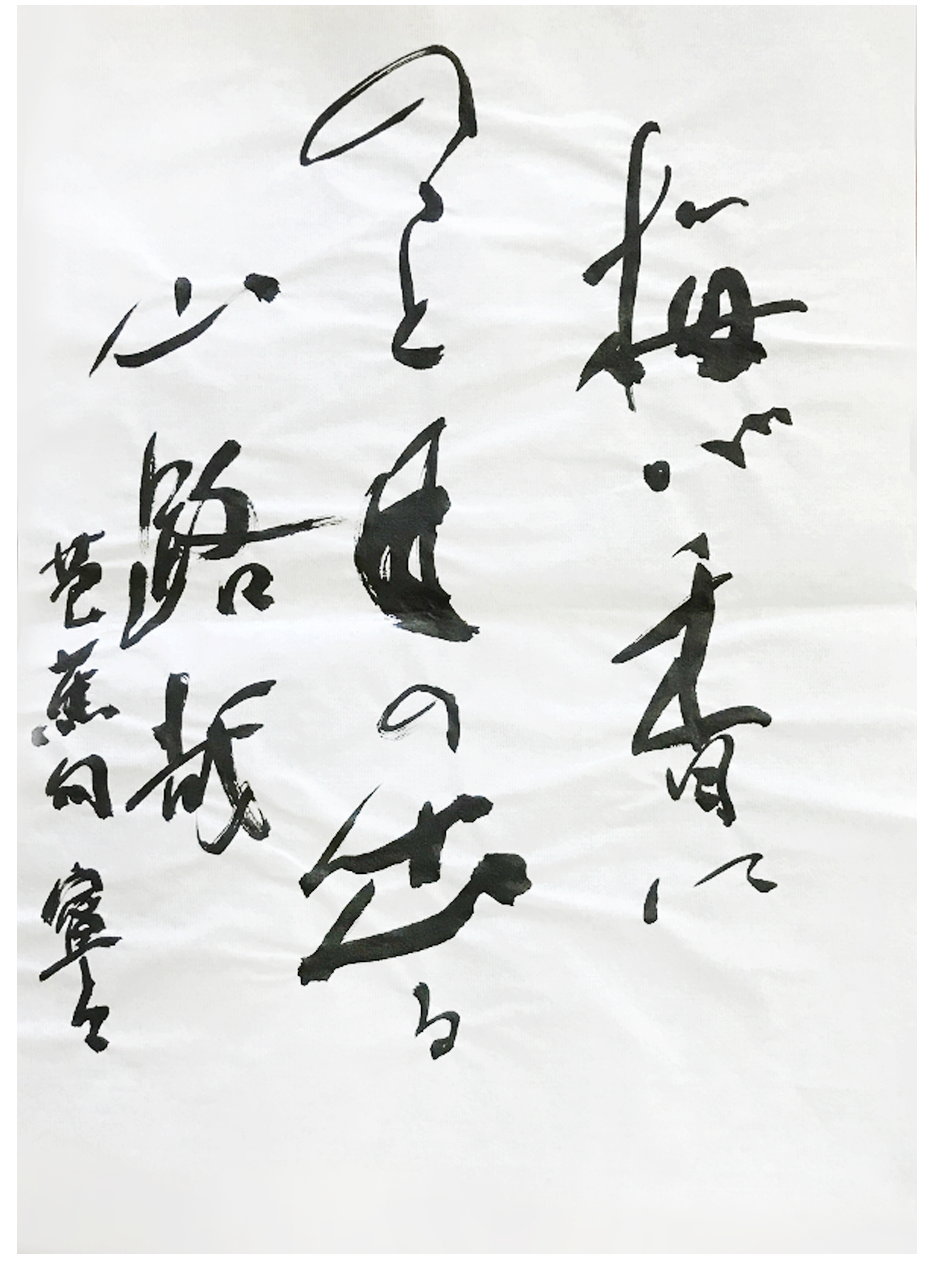 梅が香に
のつと日の出る
山路哉
芭蕉句 寧